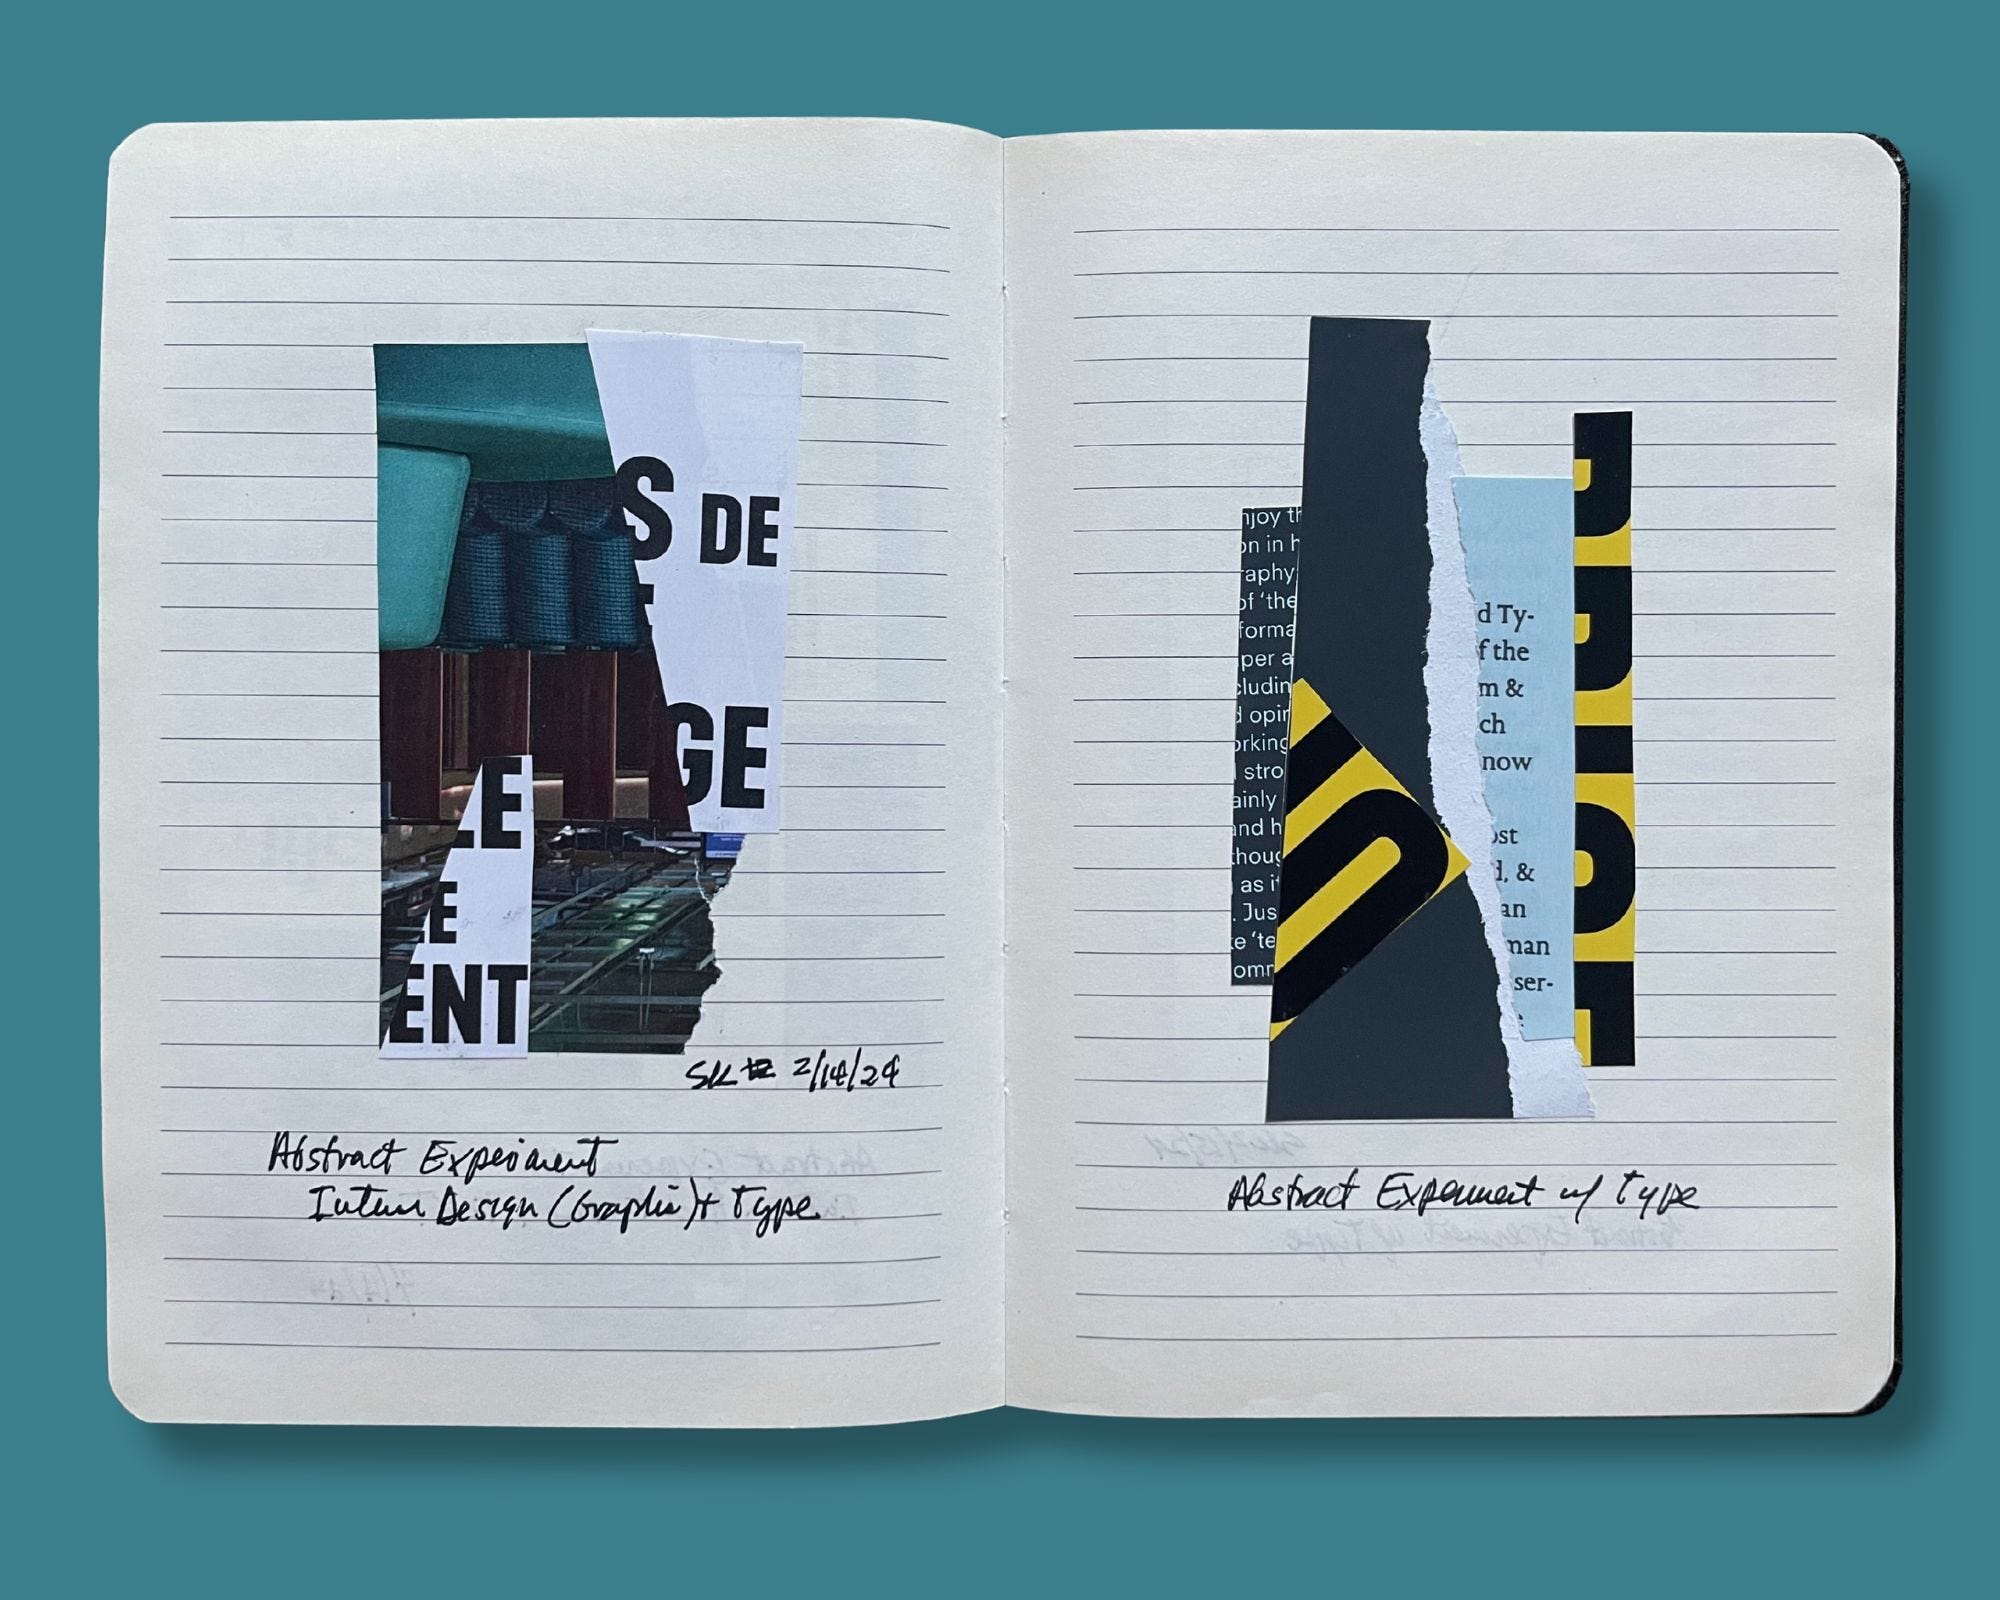 S DE
GE
LE
E
ENT
SK 2/14/24
Abstract Experiment
Design (Graphic) + Type
njoy th
on in h
raphy
of ‘the
forma
per a
cludin
d opin
orking
stro
ainly
and h
thoug
as it
. Jus
te ‘te
omm
d Ty-
f the
m &
ch
now
ost
d, &
an
man
ser-
e
Abstract Experiment w/ Type